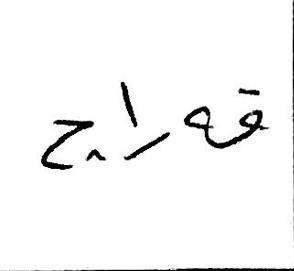 قه راج